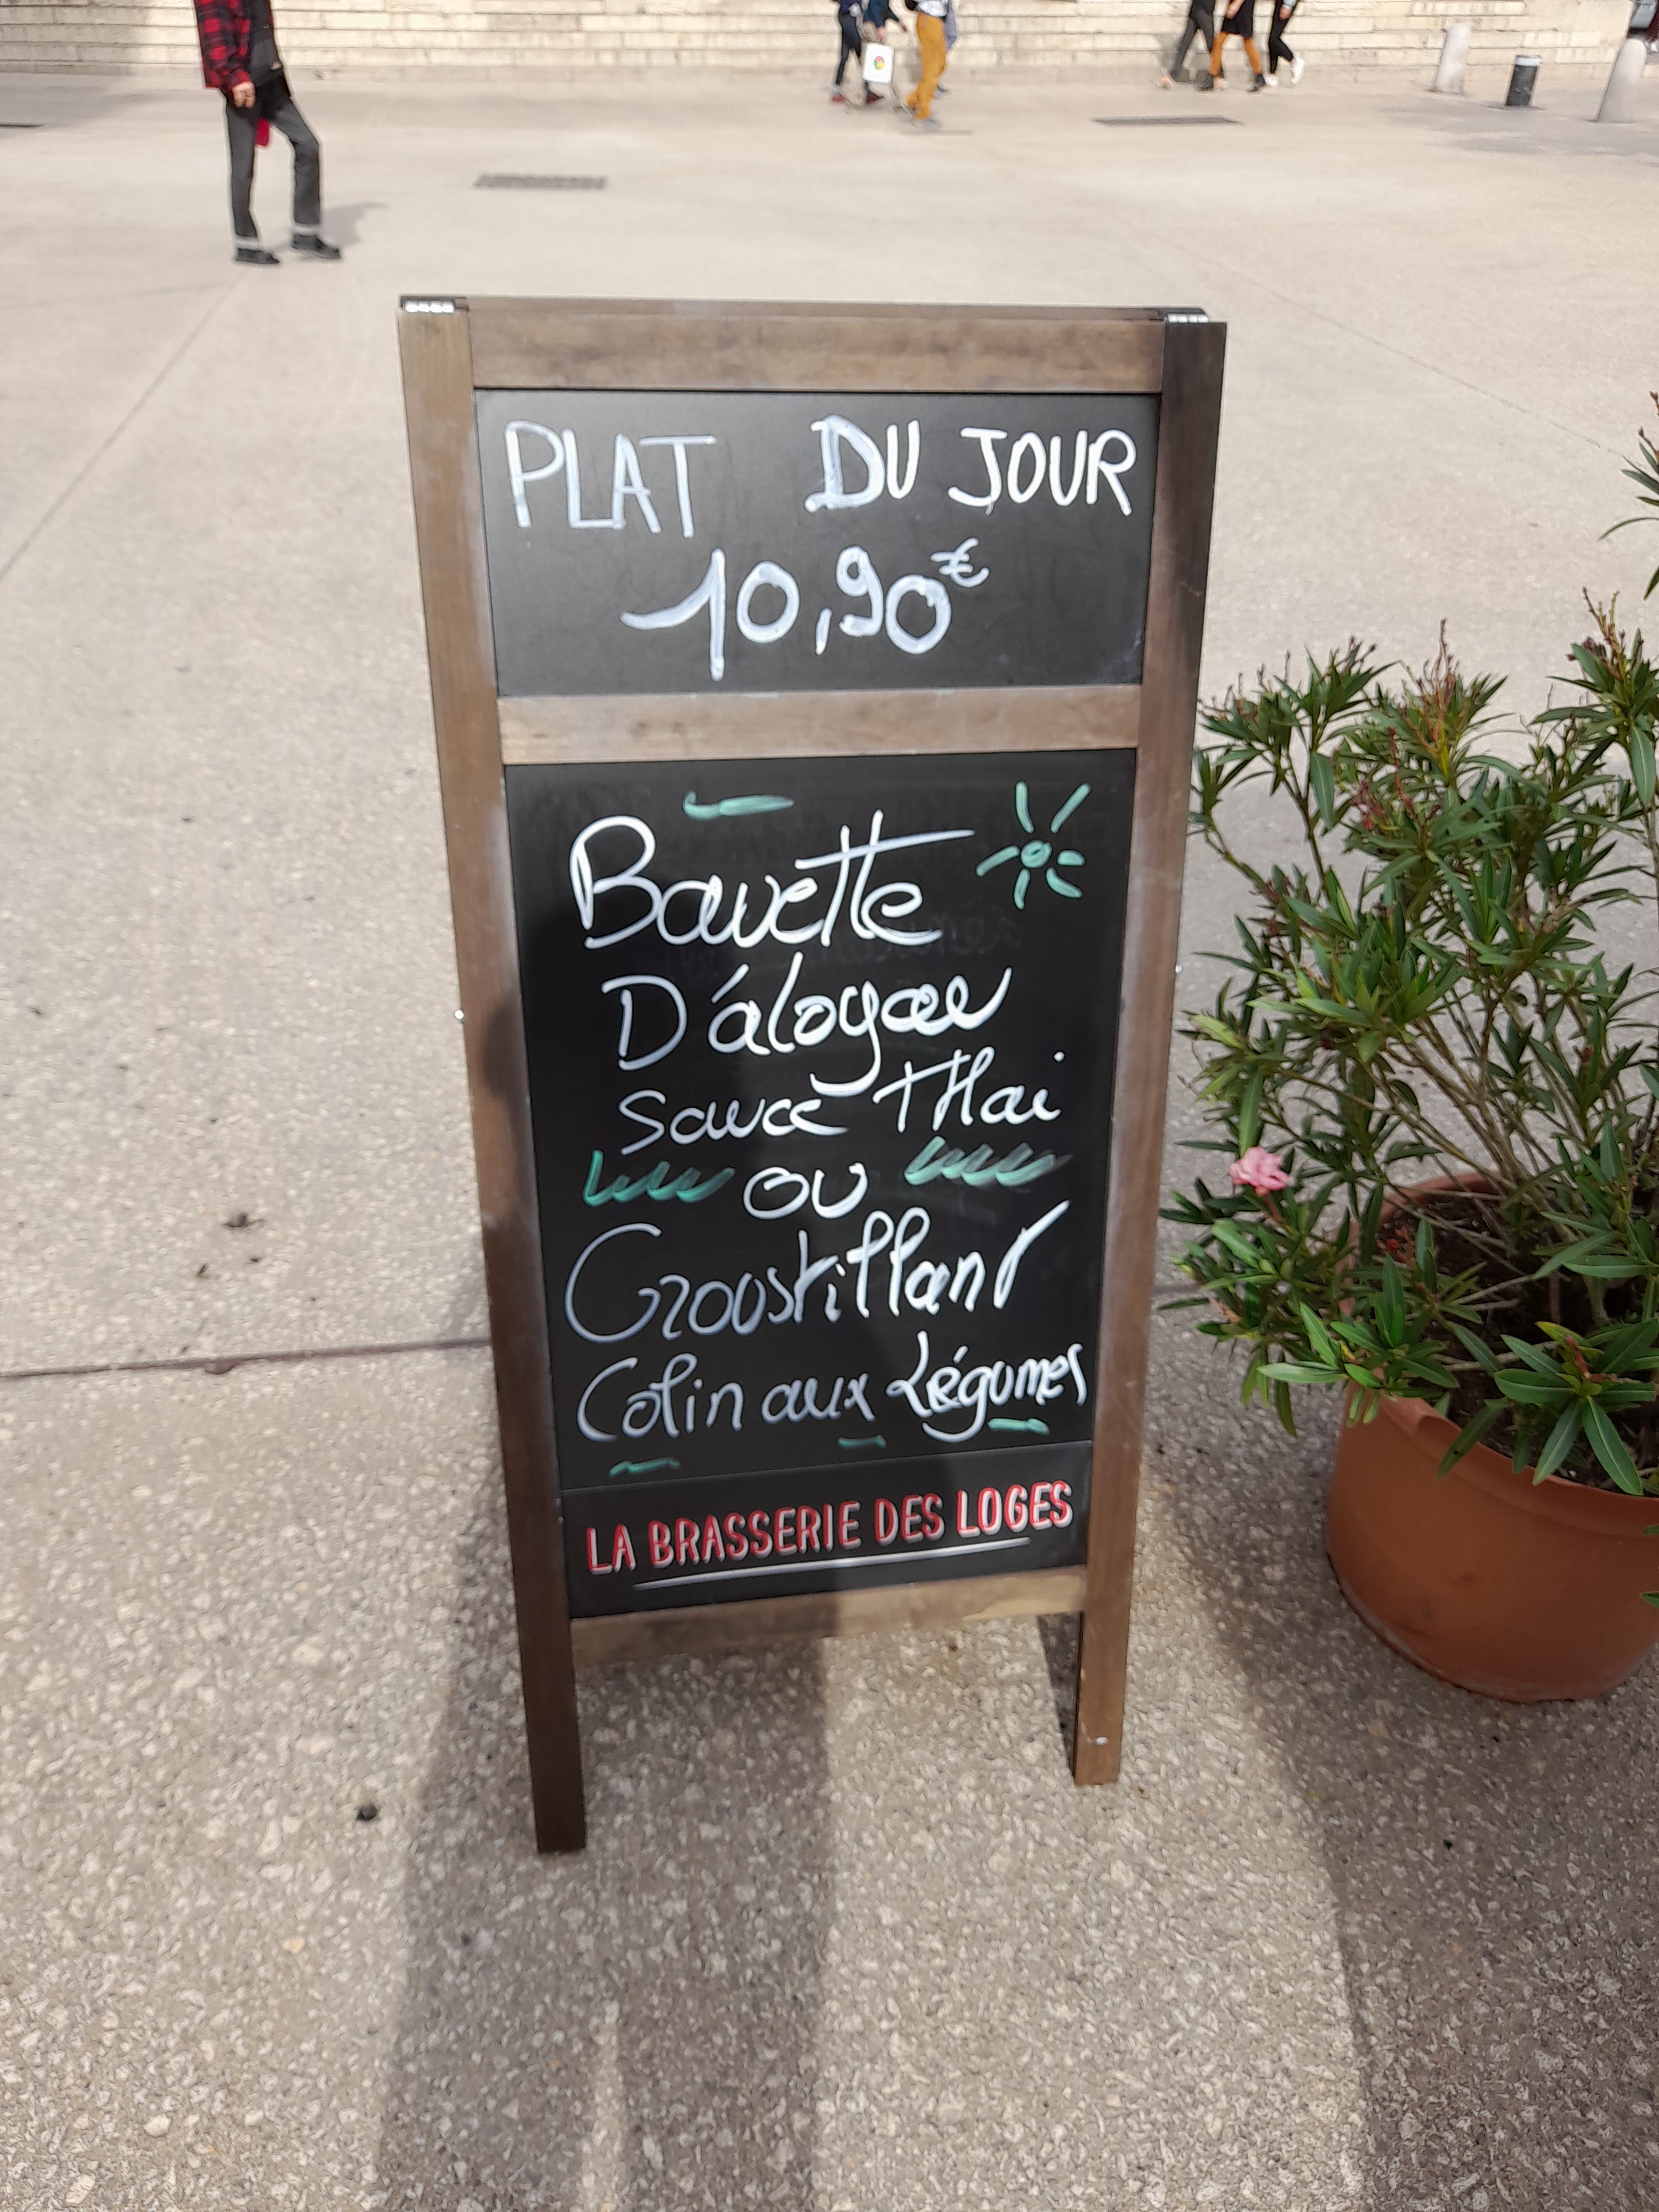 PLAT DU JOUR
10,90€
Bavette
D'aloyau
sauce THai
ou
Croustillant
Colin aux Légumes
LA BRASSERIE DES LOGES